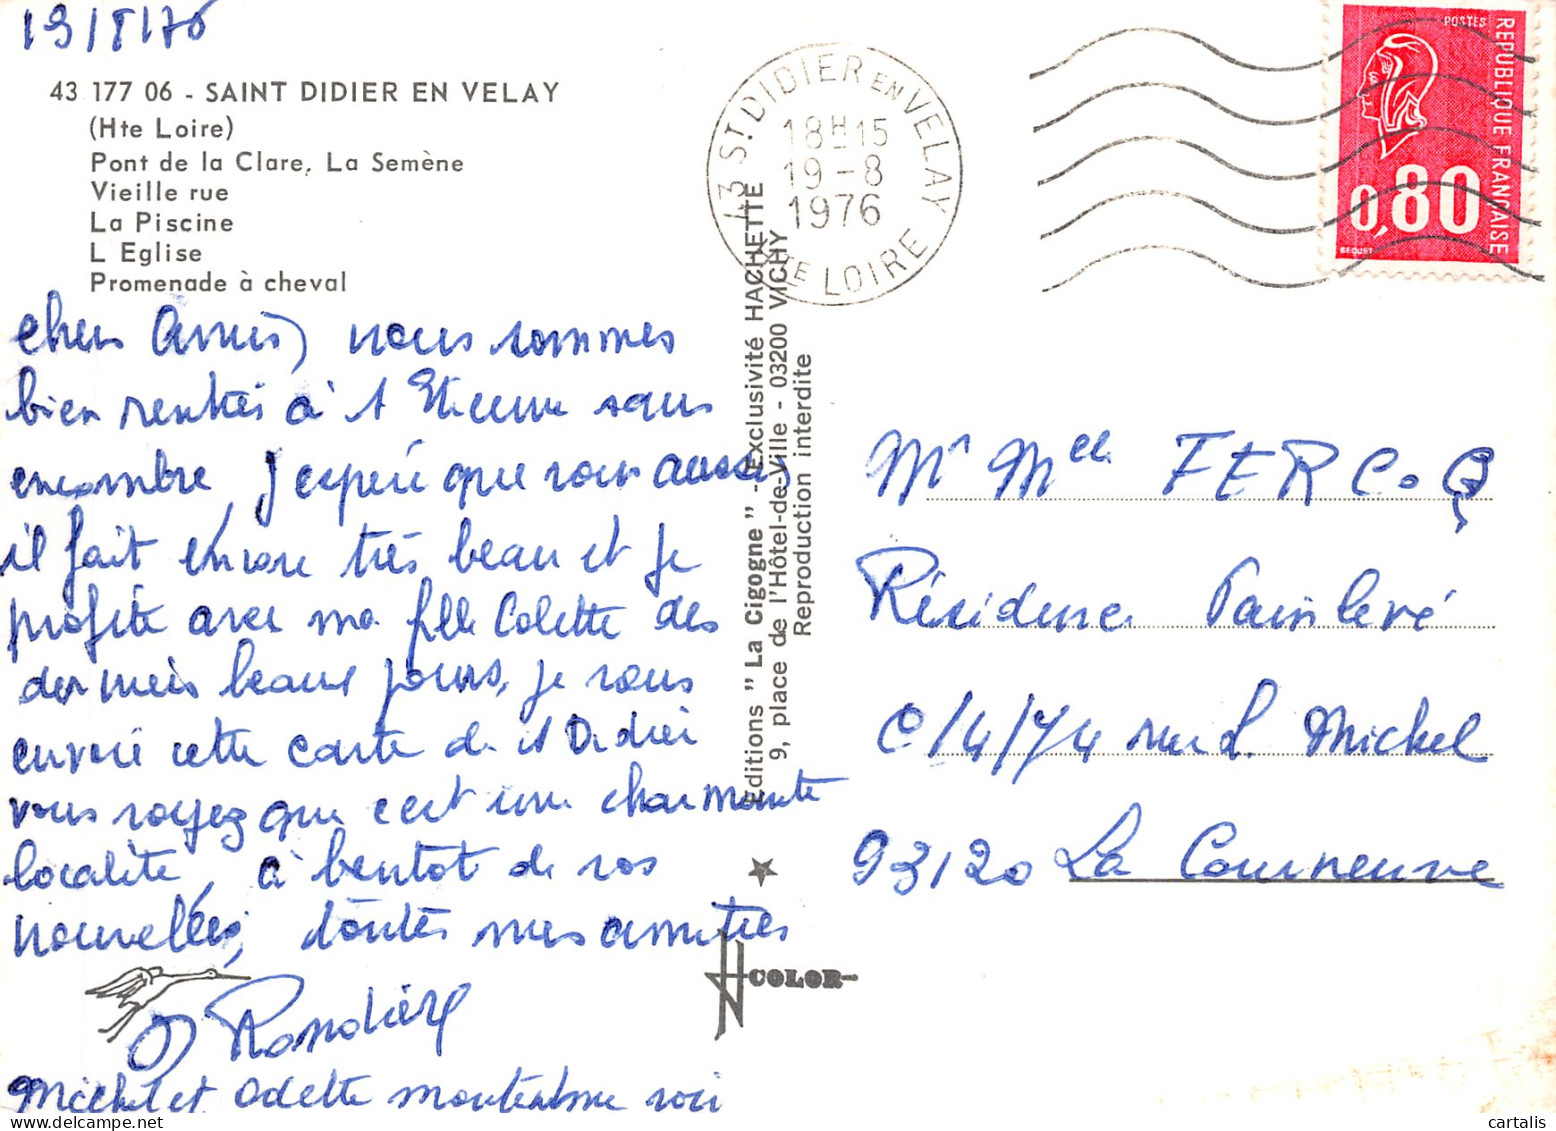 19/8/76
43 177 06 - SAINT DIDIER EN VELAY
(Hte Loire)
Pont de la Clare, La Semène
Vieille rue
La Piscine
L Eglise
Promenade à cheval
chers Amis, nous sommes
bien rentrés à St Etienne sans
encombre, j'espère que vous aussi,
il fait encore très beau et je
profite avec ma fille Colette des
derniers beaux jours, je vous
envoie cette carte de St Didier
vous voyez que c'est une charmante
localité, à bientôt de vos
nouvelles, toutes mes amitiés
Michel et Odette
43 ST DIDIER EN VELAY
18H15
19-8
1976
HTE LOIRE
Editions " La Cigogne " - Exclusivité HACHETTE
9, place de l'Hôtel-de-Ville - 03200 VICHY
Reproduction interdite
COLOR
POSTES
REPUBLIQUE FRANÇAISE
0,80
BEQUET
Mr Melle FERCOQ
Résidence Painlevé
C/4/74 rue L. Michel
93120 La Courneuve
cartalis